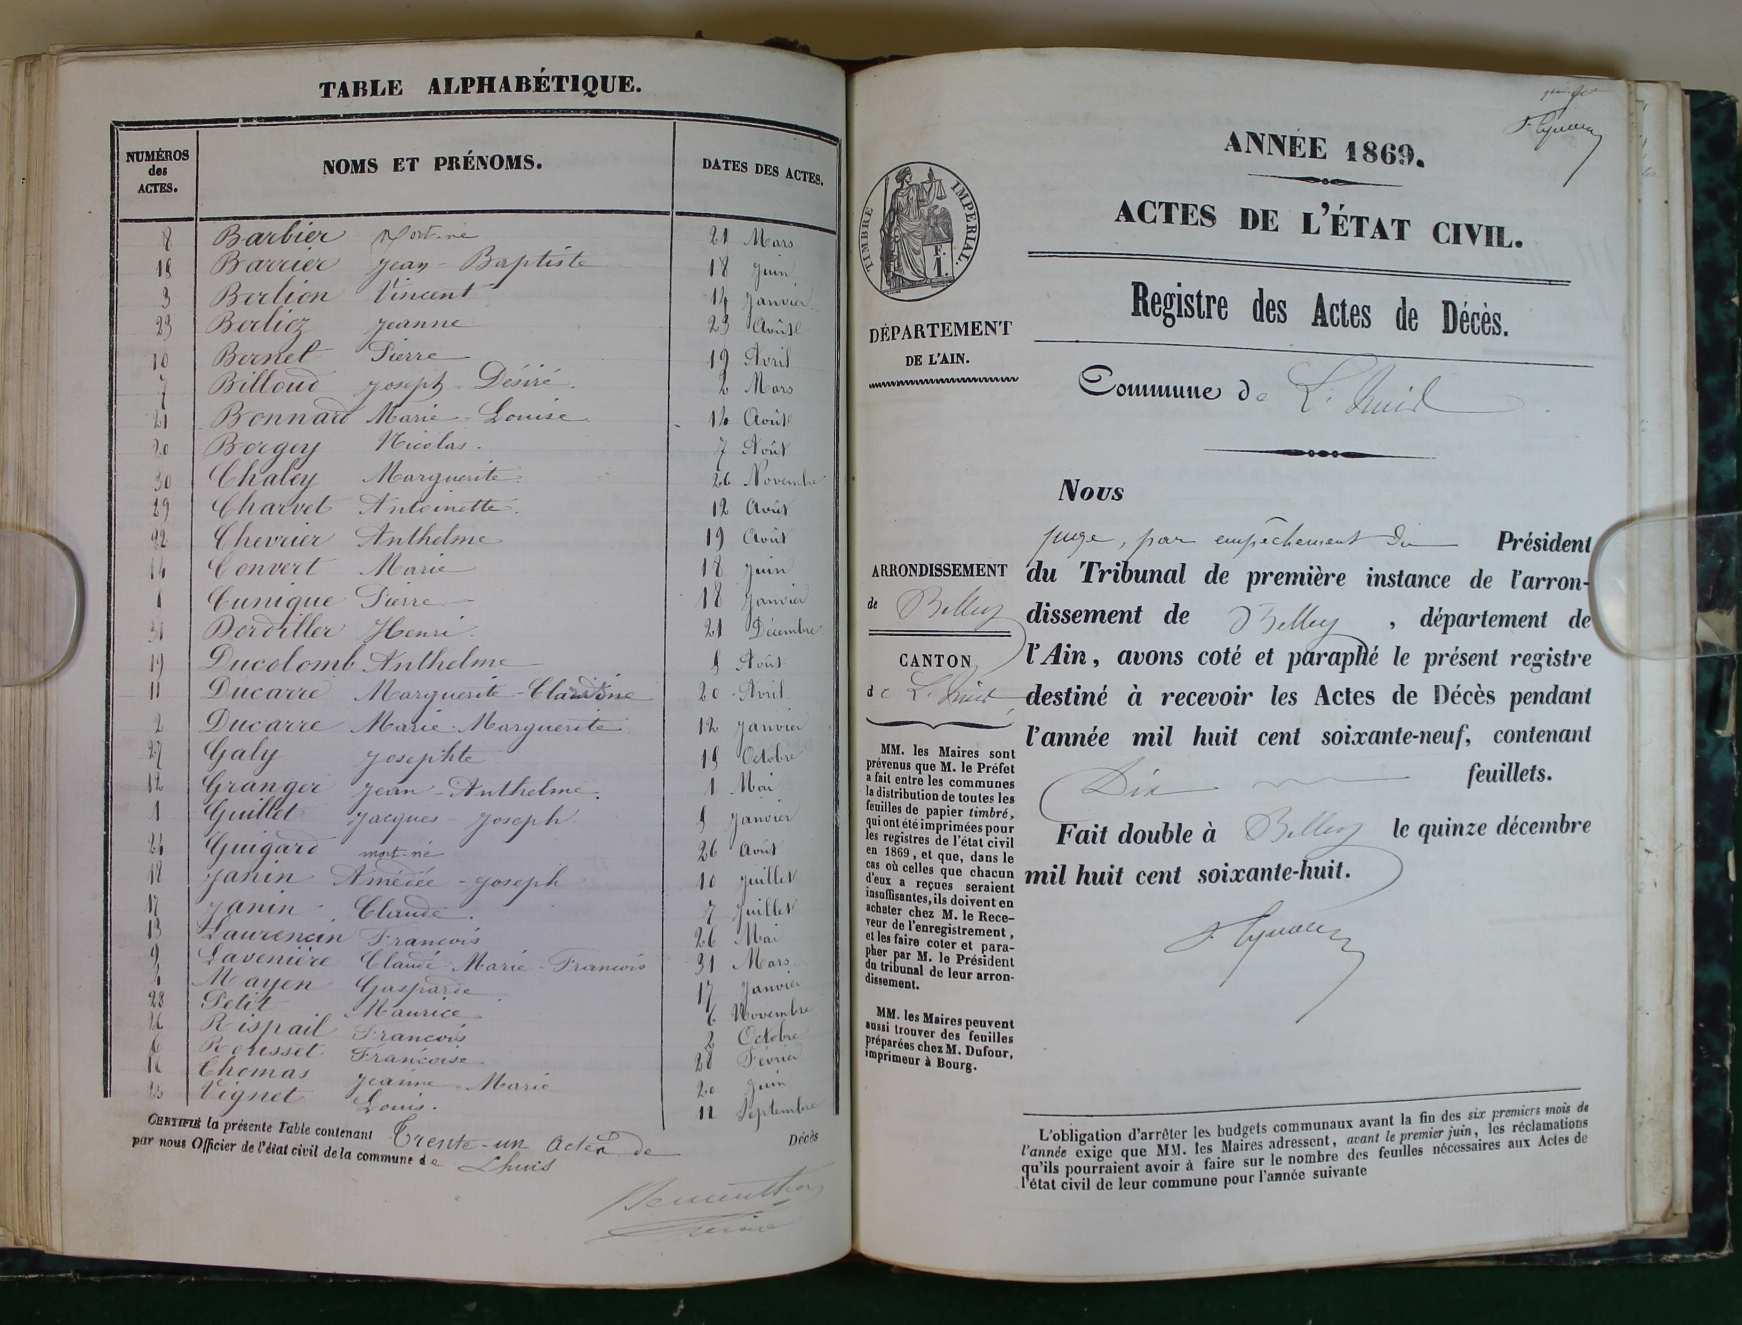 TABLE ALPHABÉTIQUE.
NUMÉROS des ACTES. NOMS ET PRÉNOMS. DATES DES ACTES.
8 Barbier Mort-né 21 Mars
18 Barrier Jean-Baptiste 18 Juin
3 Berlion Vincent 14 Janvier
23 Berlioz Jeanne 23 Août
10 Bernet Pierre 19 Avril
7 Billoud Joseph-Désiré. 2 Mars
21 Bonnard Marie-Louise 14 Août
20 Borgey Nicolas. 7 Août
30 Chaley Marguerite. 26 Novembre
29 Charvet Antoinette. 12 Août
22 Chevrier Anthelme 19 Août
14 Convert Marie 18 Juin
Cunique Pierre 18 Janvier
31 Derdiller Henri. 21 Décembre
19 Ducolomb Anthelme Août
11 Ducarre Marguerite-Claudine 20 Avril
2 Ducarre Marie-Marguerite 12 Janvier
27 Galy Josephte 19 Octobre
12 Granger Jean-Anthelme. 1 Mai
1 Guillet Jacques-Joseph Janvier
Guigard mort-né 26 Août
18 Janin Amédée-Joseph 10 Juillet
17 Janin Claude. 7 Juillet
13 Laurencin François 26 Mai
9 Lavenière Claude-Marie-François 31 Mars
Mayen Gasparde 17 Janvier
28 Petit Maurice 6 Novembre
26 Rispail François 2 Octobre
6 Rousset Françoise 28 Février
16 Thomas Jeanne-Marie 20 Juin
Vignet Louis. 12 Septembre
CERTIFIÉ la présente Table contenant Trente-un Actes de Décès
par nous Officier de l'état civil de la commune de Lhuis
ANNÉE 1869.
ACTES DE L'ÉTAT CIVIL.
TIMBRE IMPÉRIAL.
F.
1.
Registre des Actes de Décès.
DÉPARTEMENT
DE L'AIN.
Commune de L'huis
Nous
juge, par empêchement du Président
du Tribunal de première instance de l'arron-
dissement de Belley, département de
l'Ain, avons coté et paraphé le présent registre
destiné à recevoir les Actes de Décès pendant
l'année mil huit cent soixante-neuf, contenant
Dix feuillets.
Fait double à Belley le quinze décembre
mil huit cent soixante-huit.
ARRONDISSEMENT
de Belley
CANTON
de L'huis
MM. les Maires sont
prévenus que M. le Préfet
a fait entre les communes
la distribution de toutes les
feuilles de papier timbré,
qui ont été imprimées pour
les registres de l'état civil
en 1869, et que, dans le
cas où celles que chacun
d'eux a reçues seraient
insuffisantes, ils doivent en
acheter chez M. le Rece-
veur de l'enregistrement,
et les faire coter et para-
pher par M. le Président
du tribunal de leur arron-
dissement.
MM. les Maires peuvent
aussi trouver des feuilles
préparées chez M. Dufour,
imprimeur à Bourg.
L'obligation d'arrêter les budgets communaux avant la fin des six premiers mois de
l'année exige que MM. les Maires adressent, avant le premier juin, les réclamations
qu'ils pourraient avoir à faire sur le nombre des feuilles nécessaires aux Actes de
l'état civil de leur commune pour l'année suivante